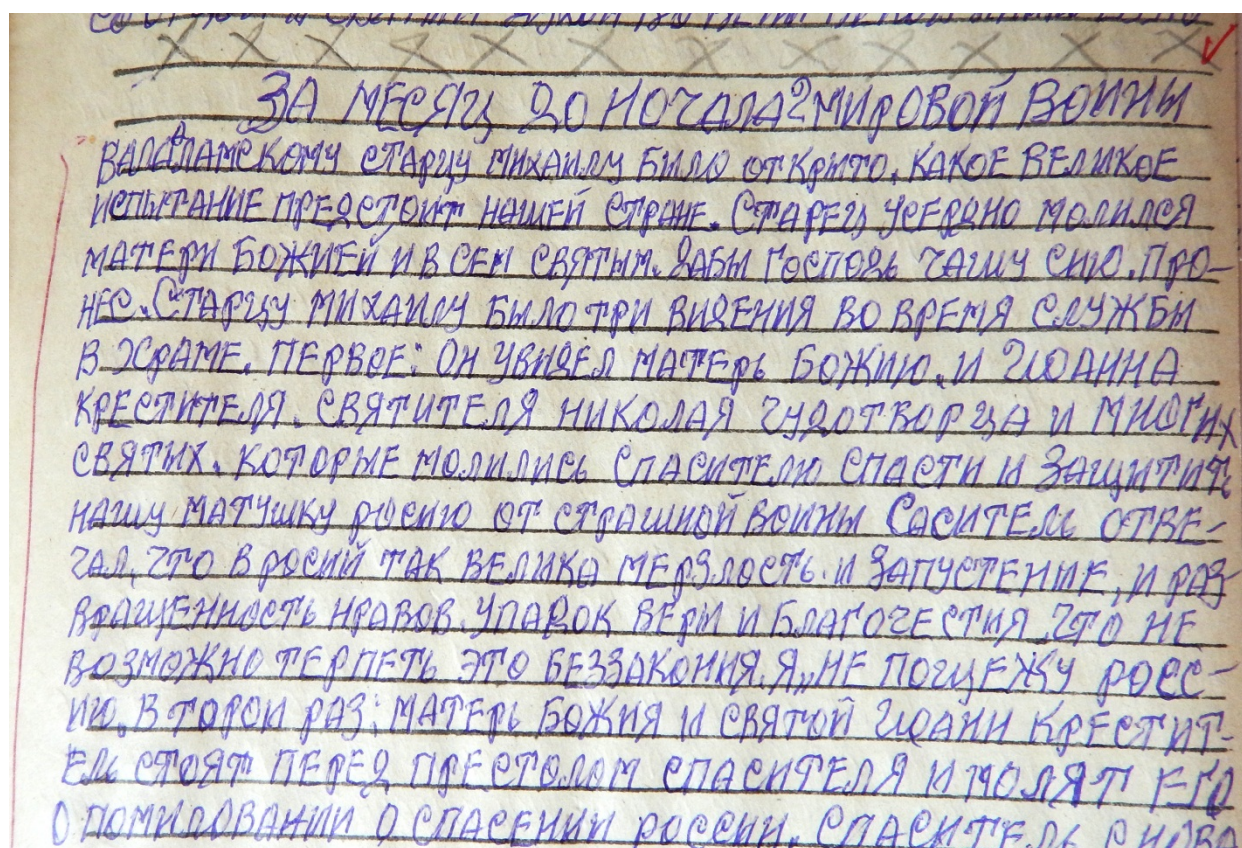 ЗА МЕСЯЦ ДО НОЧАЛА 2 МИРОВОЙ ВОИНЫ
ВАЛААМСКОМУ СТАРЦУ МИХАИЛУ БЫЛО ОТКРЫТО, КАКОЕ ВЕЛИКОЕ
ИСПЫТАНИЕ ПРЕДСТОИТ НАШЕЙ СТРАНЕ. СТАРЕЦ УСЕРДНО МОЛИЛСЯ
МАТЕРИ БОЖИЕЙ И ВСЕМ СВЯТЫМ. ДАБЫ ГОСПОДЬ ЧАШУ СИЮ. ПРО-
НЕС. СТАРЦУ МИХАИЛУ БЫЛО ТРИ ВИДЕНИЯ ВО ВРЕМЯ СЛУЖБЫ
В ХРАМЕ. ПЕРВОЕ: ОН УВИДЕЛ МАТЕРЬ БОЖИЮ. И ИОАННА
КРЕСТИТЕЛЯ. СВЯТИТЕЛЯ НИКОЛАЯ ЧУДОТВОРЦА И МНОГИХ
СВЯТЫХ. КОТОРЫЕ МОЛИЛИСЬ СПАСИТЕЛЮ СПАСТИ И ЗАЩИТИТЬ
НАШУ МАТУШКУ РОСИЮ ОТ СТРАШНОЙ ВОИНЫ САСИТЕЛЬ ОТВЕ-
ЧАЛ, ЧТО В РОСИЙ ТАК ВЕЛИКА МЕРЗЛОСТЬ И ЗАПУСТЕНИЕ, И РАЗ-
ВРАЩЕННОСТЬ НРАВОВ. УПАДОК ВЕРЫ И БЛАГОЧЕСТИЯ. ЧТО НЕ
ВОЗМОЖНО ТЕРПЕТЬ ЭТО БЕЗЗАКОНИЯ. Я„ НЕ РОСС-
ИЮ. ВТОРОИ РАЗ: МАТЕРЬ БОЖИЯ И СВЯТОЙ ИОАНН КРЕСТИТ-
ЕЛЬ СТОЯТ ПЕРЕД ПРЕСТОЛОМ СПАСИТЕЛЯ И МОЛЯТ ЕГО
О ПОМИЛОВАНИИ О СПАСЕНИИ РОССИИ. СПАСИТЕЛЬ СНОВА